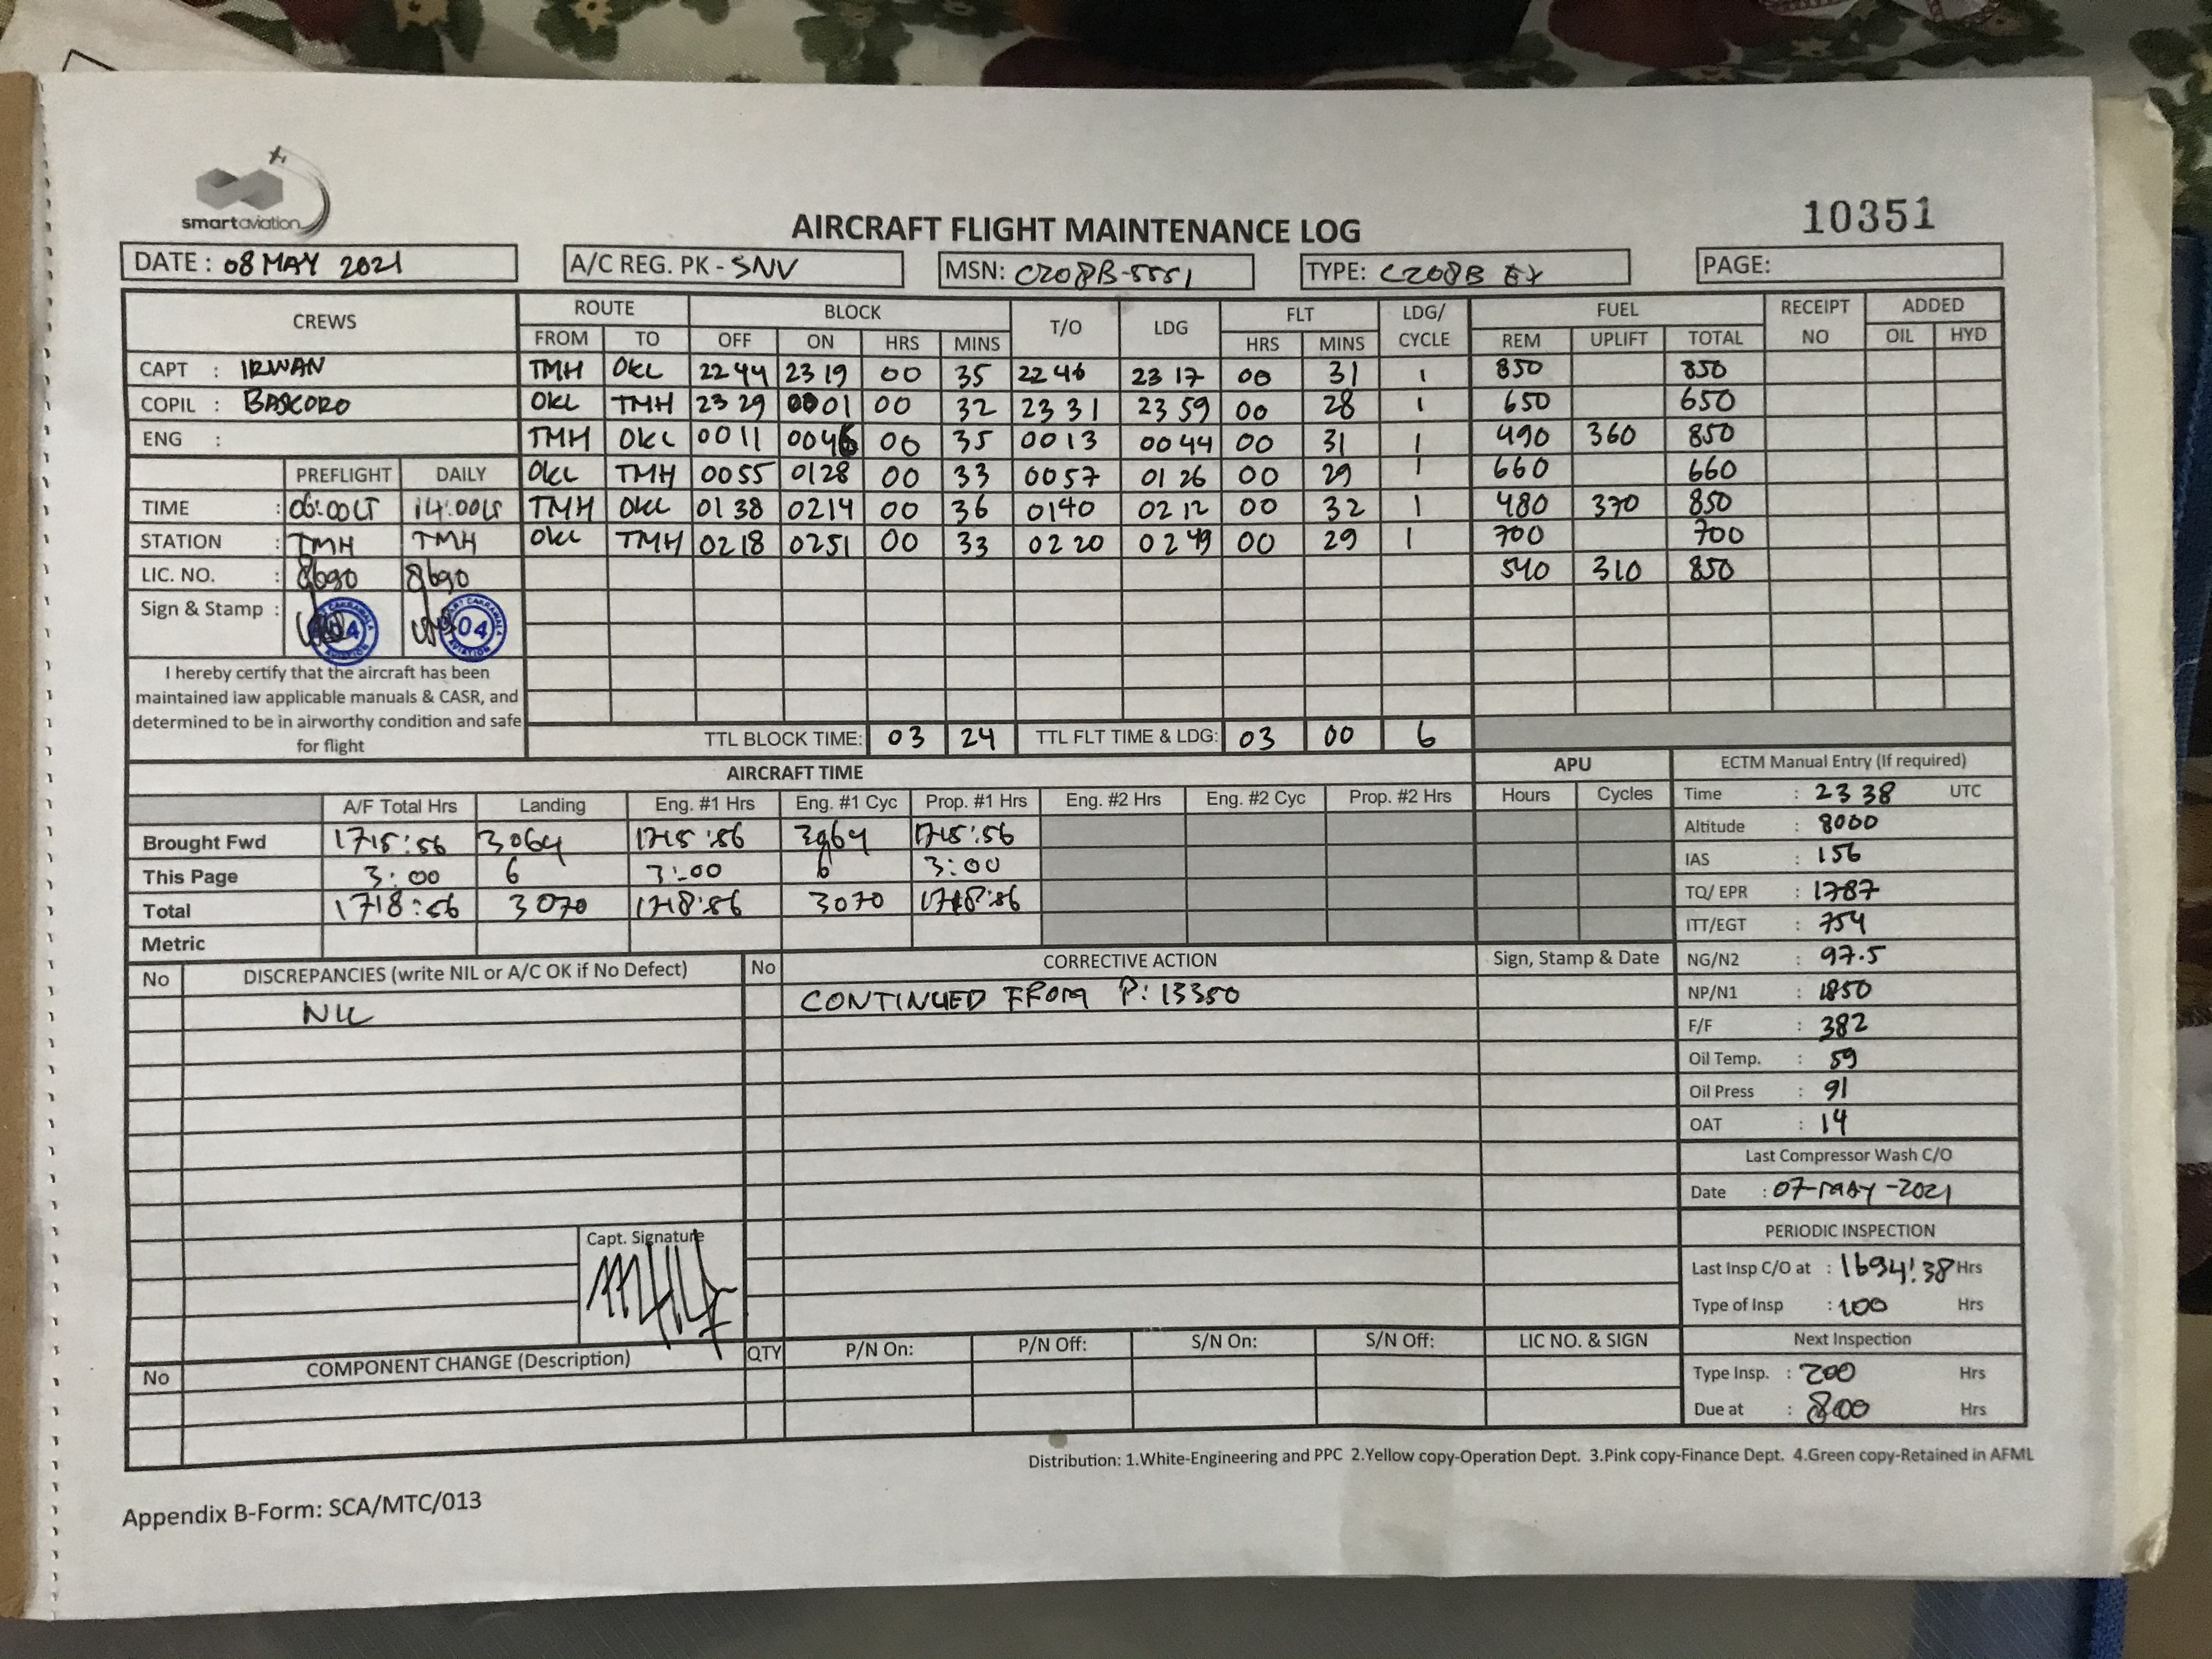 smartaviation
10351
AIRCRAFT FLIGHT MAINTENANCE LOG
DATE : 08 MAY 2021 A/C REG. PK - SNV MSN: C208B-5551 TYPE: C208B EX PAGE:
CREWS ROUTE BLOCK T/O LDG FLT LDG/ CYCLE FUEL RECEIPT NO ADDED
FROM TO OFF ON HRS MINS HRS MINS REM UPLIFT TOTAL OIL HYD
CAPT : IRWAN TMH OKL 22 44 23 19 00 35 22 46 23 17 00 31 1 850 850
COPIL : BASKORO OKL TMH 23 29 0001 00 32 23 31 23 59 00 28 1 650 650
ENG : TMH OKL 00 11 0046 00 35 00 13 00 44 00 31 1 490 360 850
PREFLIGHT DAILY OKL TMH 00 55 0128 00 33 00 57 01 26 00 29 1 660 660
TIME : 06:00LT 14:00LT TMH OKL 01 38 0214 00 36 0140 02 12 00 32 1 480 370 850
STATION : TMH TMH OKL TMH 02 18 0251 00 33 02 20 02 49 00 29 1 700 700
LIC. NO. : 8690 8690 540 310 850
Sign & Stamp : 04 04
I hereby certify that the aircraft has been
maintained iaw applicable manuals & CASR, and
determined to be in airworthy condition and safe
for flight
TTL BLOCK TIME: 03 24 TTL FLT TIME & LDG: 03 00 6
AIRCRAFT TIME APU ECTM Manual Entry (If required)
A/F Total Hrs Landing Eng. #1 Hrs Eng. #1 Cyc Prop. #1 Hrs Eng. #2 Hrs Eng. #2 Cyc Prop. #2 Hrs Hours Cycles Time : 23 38 UTC
Brought Fwd 1715:56 3064 1715:56 3064 1715:56 Altitude : 8000
This Page 3:00 6 3:00 6 3:00 IAS : 156
Total 1718:56 3070 1718:56 3070 1718:56 TQ/ EPR : 1787
Metric ITT/EGT : 754
No DISCREPANCIES (write NIL or A/C OK if No Defect) No CORRECTIVE ACTION Sign, Stamp & Date NG/N2 : 97.5
NIL CONTINUED FROM P: 13350 NP/N1 : 1850
F/F : 382
Oil Temp. : 59
Oil Press : 91
OAT : 14
Last Compressor Wash C/O
Date : 07-MAY-2021
Capt. Signature
PERIODIC INSPECTION
Last Insp C/O at : 1694:38 Hrs
Type of Insp : 100 Hrs
No COMPONENT CHANGE (Description) QTY P/N On: P/N Off: S/N On: S/N Off: LIC NO. & SIGN Next Inspection
Type Insp. : 200 Hrs
Due at : 800 Hrs
Distribution: 1.White-Engineering and PPC 2.Yellow copy-Operation Dept. 3.Pink copy-Finance Dept. 4.Green copy-Retained in AFML
Appendix B-Form: SCA/MTC/013